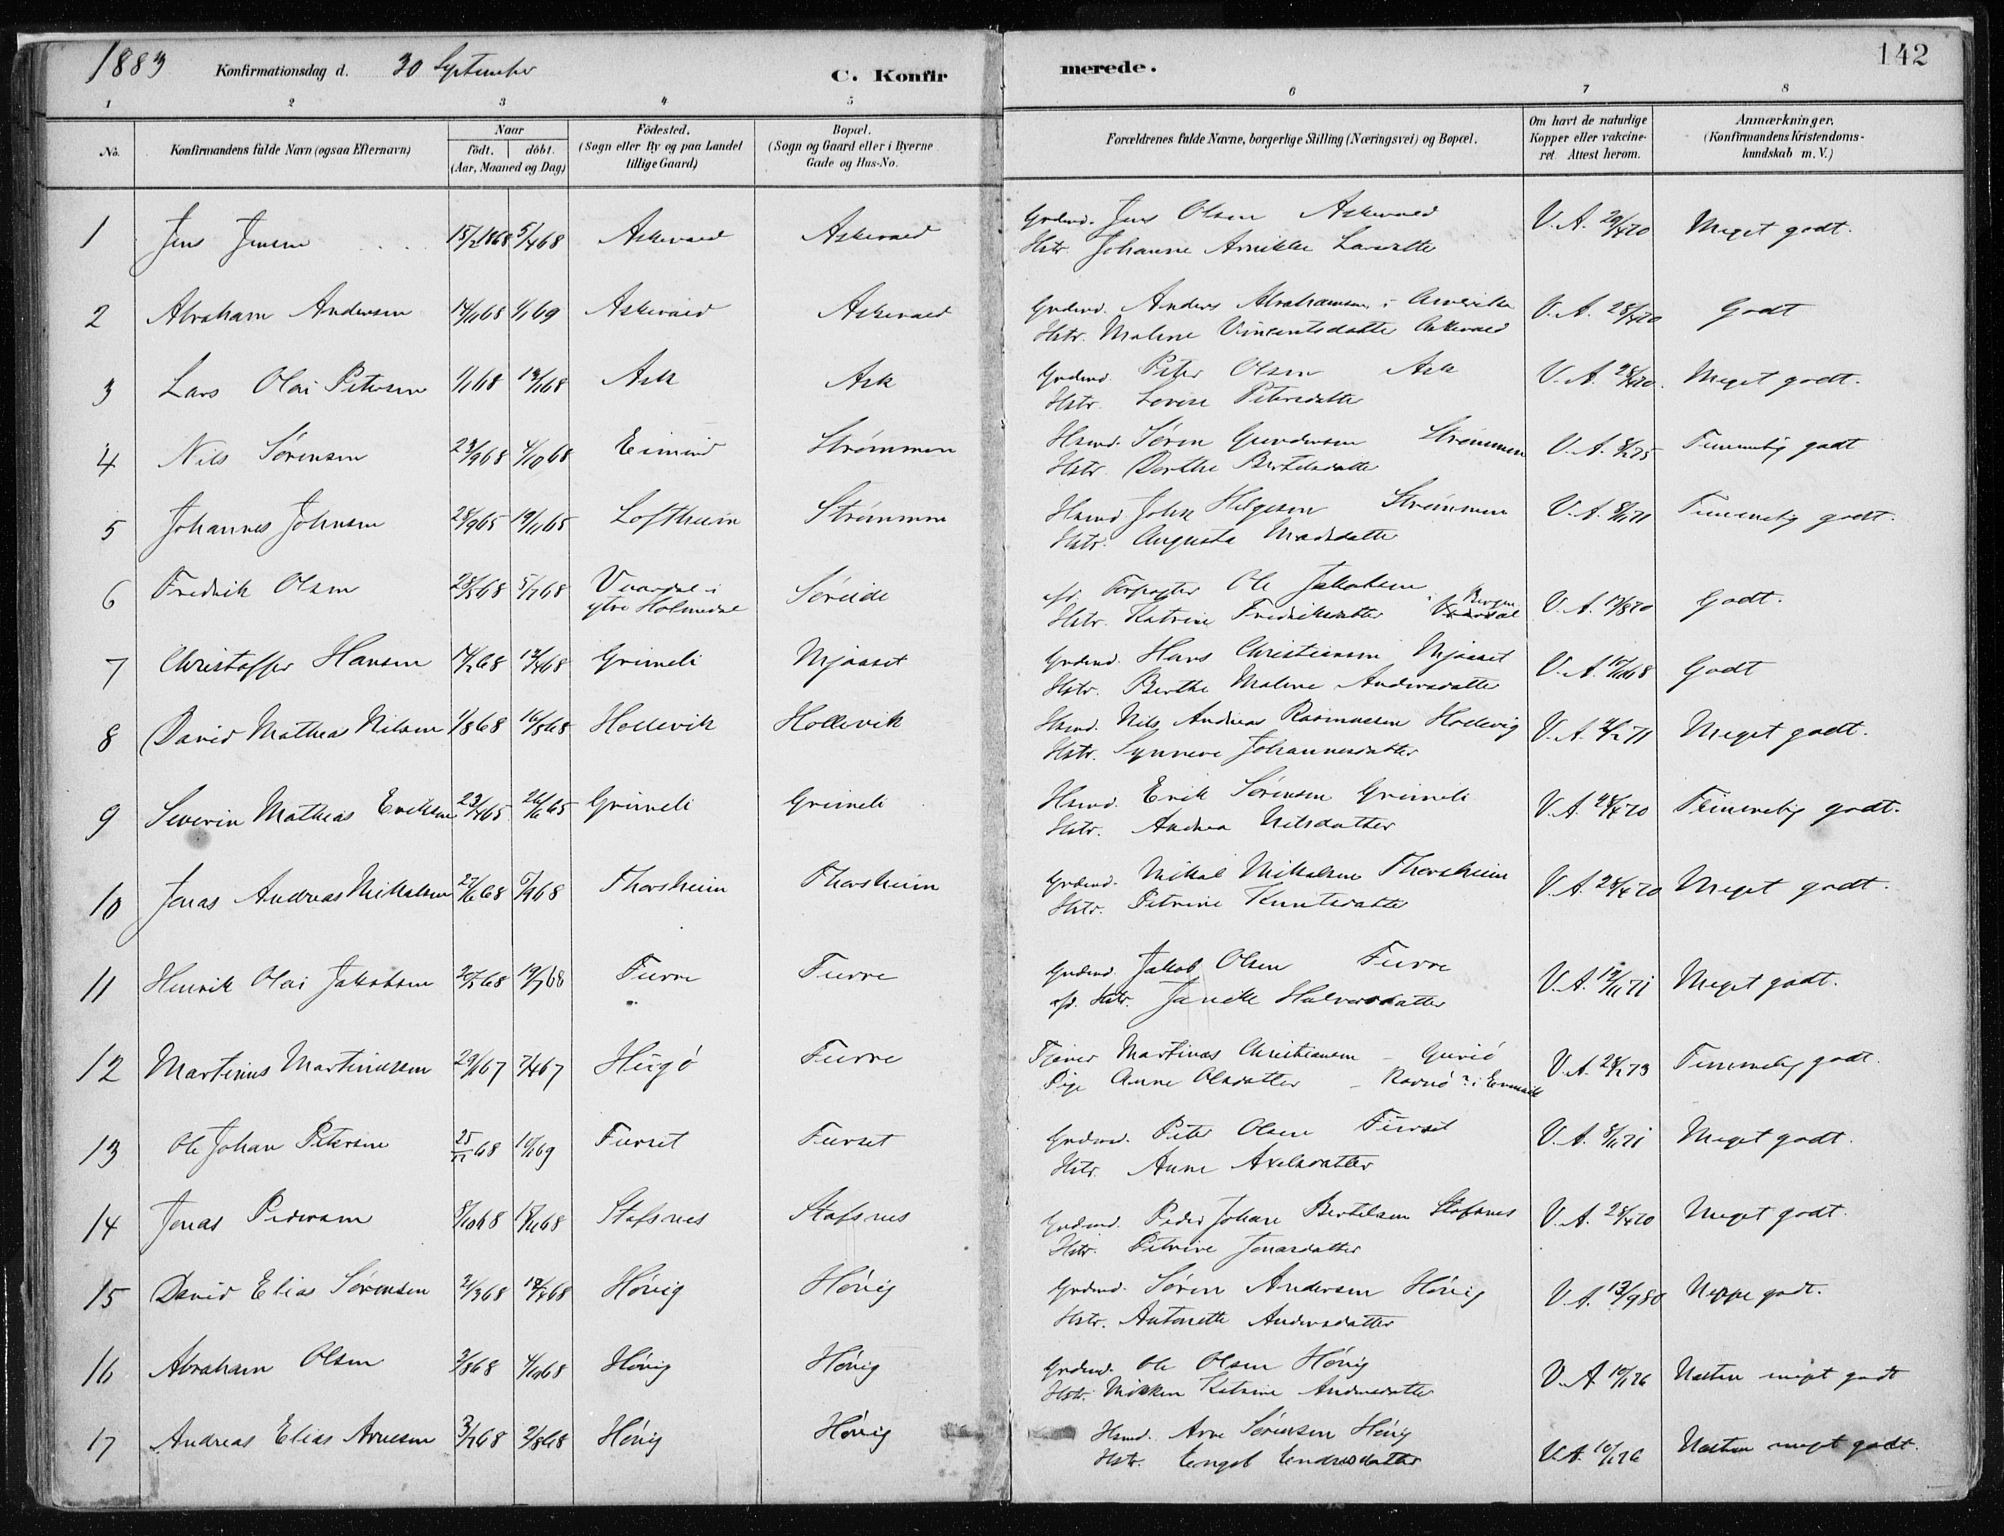 1883 Konfirmationsdag d. 30 September C. Konfir merede. 142
1 2 3 4 5 6 7 8
No. Konfirmandens fulde Navn (ogsaa Efternavn) Naar Födt. döbt. (Aar, Maaned og Dag) Födested. (Sogn eller By og paa Landet tillige Gaard) Bopæl. (Sogn og Gaard eller i Byerne Gade og Hus-No. Forældrenes fulde Navne, borgerlige Stilling (Næringsvei) og Bopæl. Om havt de naturlige Kopper eller vakcineret. Attest herom. Anmærkninger. (Konfirmandens Kristendomskundskab m. V.)
1 Jens Jensen 15/2 1868 5/4 68 Askevold Askevold Grdmd. Jens Olsen Askevold V. A. 20/4 70 Meget godt.
Hstr. Johanne Larsdatter
2 Abraham Andersen 14/11 68 1/1 69 Askevold Askevold Grdmd. Anders Abrahamsen i Amerika V. A. 28/4 70 Godt
Hstr. Malene Vincentsdatter Askevold
3 Lars Olai Petersen 1/1 68 Ask Ask Grdmd. Peter Olsen Ask V. A. 28/4 70. Meget godt.
Hstr. Lovise Petersdatter
4 Nils Sørensen 23/9 68 4/10 68 Strømmen Hsmd. Søren Gundersen Strømmen V. A. Temmelig godt
Hstr. Berthe Bertelsdatter
5 Johannes Johnsen 28/9 65 19/11 65 Loftheim Strømmen Hsmd John Helgesen Strømmen V. A. 8/11 71 Temmelig godt.
Hstr. Augusta Madsdatter
6 Fredrik Olsen 5/7 68 Vaardal i ytre Holmedal Søreide Ole Jakobsen V. A. 17/8 70 Godt.
Hstr. Katrine Fredriksdatter i Bergen
7 Christoffer Hansen 14/2 68 13/4 68 Grimeli Mjaaset Grdmd. Hans Christiansen Mjaaset V. A. Godt
Hstr. Berthe Malene Andersdatter
8 David Mathias Nilsen 1/8 68 16/8 68 Hollevik Hollevik Hsmd. Nils Andreas Rasmussen Hollevig V. A. Meget godt.
Hstr. Synneve Johannesdatter
9 Severin Mathias Eriksen 23/4 65 Grimeli Grimeli Hsmd. Erik Sørensen Grimeli V. A. 28/4 70 Temmelig godt.
Hstr. Andrea Nilsdatter
10 Jonas Andreas Mikkalsen 27/6 68 6/9 68 Thorsheim Thorsheim Grdmd. Mikkal Mikkalsen Thorsheim V. A 28/4 70 Meget godt.
Hstr. Petrine Knutsdatter
11 Henrik Olai Jakobsen 20/5 68 19/7 68 Furre Furre Grdmd. Jakob Olsen Furre V. A. 19/11 71 Meget godt.
afd. Hstr. Janike Halvorsdatter
12 Martinus Martinussen 29/1 67 7/4 67 Hugø Furre Tjener Martinus Christiansen – V. A. Temmelig godt.
Pige Anne Olsdatter –
13 Ole Johan Petersen 25/11 68 10/1 69 Furset Furset Grdmd. Peter Olsen Furset V. A. 8/11 71 Meget godt.
Hstr. Anne Axelsdatter
14 Jonas Pedersen 8/10 68 15/11 68 Stafsnes Stafsnes Grdmd. Peder Johan Bertelsen Stafsnes V. A. 28/4 70 Meget godt.
Hstr. Petrine Jonasdatter
15 David Elias Sørensen 21/3 68 Høvig Høvig Grdmd. Søren Andersen Høvig V. A. 13/9 80 Neppe godt.
Hstr. Antonette Andersdatter
16 Abraham Olsen 3/8 68 4/10 68 Høvig Høvig Grdmd. Ole Olsen Høvig V. A. 10/1 76 Næsten meget godt
Hstr. Mikken Katrine Andersdatter
17 Andreas Elias Arnesen 3/7 68 2/8 68 Høvig Høvig Hsmd. Arne Sørensen Høvig V. A. 10/1 76 Næsten meget godt.
Hstr. Engel Endresdatter